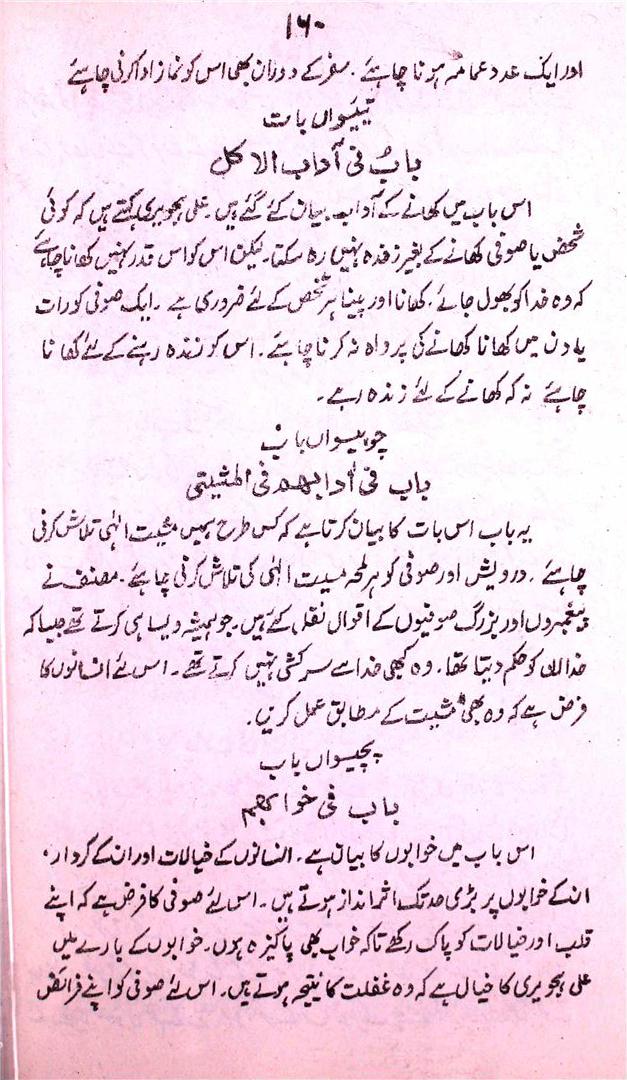 ۱۶۰
اور ایک عدد عمامہ ہونا چاہئے ۔ سفر کے دوران بھی اس کو نماز ادا کرنی چاہئے
تیئیواں بات
باب فی آداب الاکل
اس باب میں کھانے کے آداب بیان کئے گئے ہیں ۔ علی ہجویری کہتے ہیں کہ کوئی
شخص یا صوفی کھانے کے بغیر زندہ نہیں رہ سکتا ۔ لیکن اس کو اس قدر نہیں کھانا چاہئے
کہ وہ خدا کو بھول جائے ۔ کھانا اور پینا ہر شخص کے لئے ضروری ہے ۔ ایک صوفی کو رات
یا دن میں کھانا کھانے کی پرواہ نہ کرنا چاہئے ۔ اس کو زندہ رہنے کے لئے کھانا
چاہئے نہ کہ کھانے کے لئے زندہ رہے ۔
چوبیسواں باب
باب فی آدابہم فی المشیتی
یہ باب اس بات کا بیان کرتا ہے کہ کس طرح ہمیں مشیت الٰہی تلاش کرنی
چاہئے ۔ درویش اور صوفی کو ہر لمحہ مسیت الٰہی کی تلاش کرنی چاہئے ۔ مصنف نے
پیغمبروں اور بزرگ صوفیوں کے اقوال نقل کئے ہیں ۔ جو ہمیشہ ویسا ہی کرتے تھے جیسا کہ
خدا ان کو حکم دیتا تھا ۔ وہ کبھی خدا سے سرکشی نہیں کرتے تھے ۔ اس لئے انسانوں کا
فرض ہے کہ وہ بھی مشیت کے مطابق عمل کریں ۔
پچیسواں باب
باب فی خوابہم
اس باب میں خوابوں کا بیان ہے ۔ انسانوں کے خیالات اور ان کے کردار ،
ان کے خوابوں پر بڑی حد تک اثر انداز ہوتے ہیں ۔ اس لئے صوفی کا فرض ہے کہ اپنے
قلب اور خیالات کو پاک رکھے تاکہ خواب بھی پاکیزہ ہوں ۔ خوابوں کے بارے میں
علی ہجویری کا خیال ہے کہ وہ غفلت کا نتیجہ ہوتے ہیں ۔ اس لئے صوفی کو اپنے فرائض